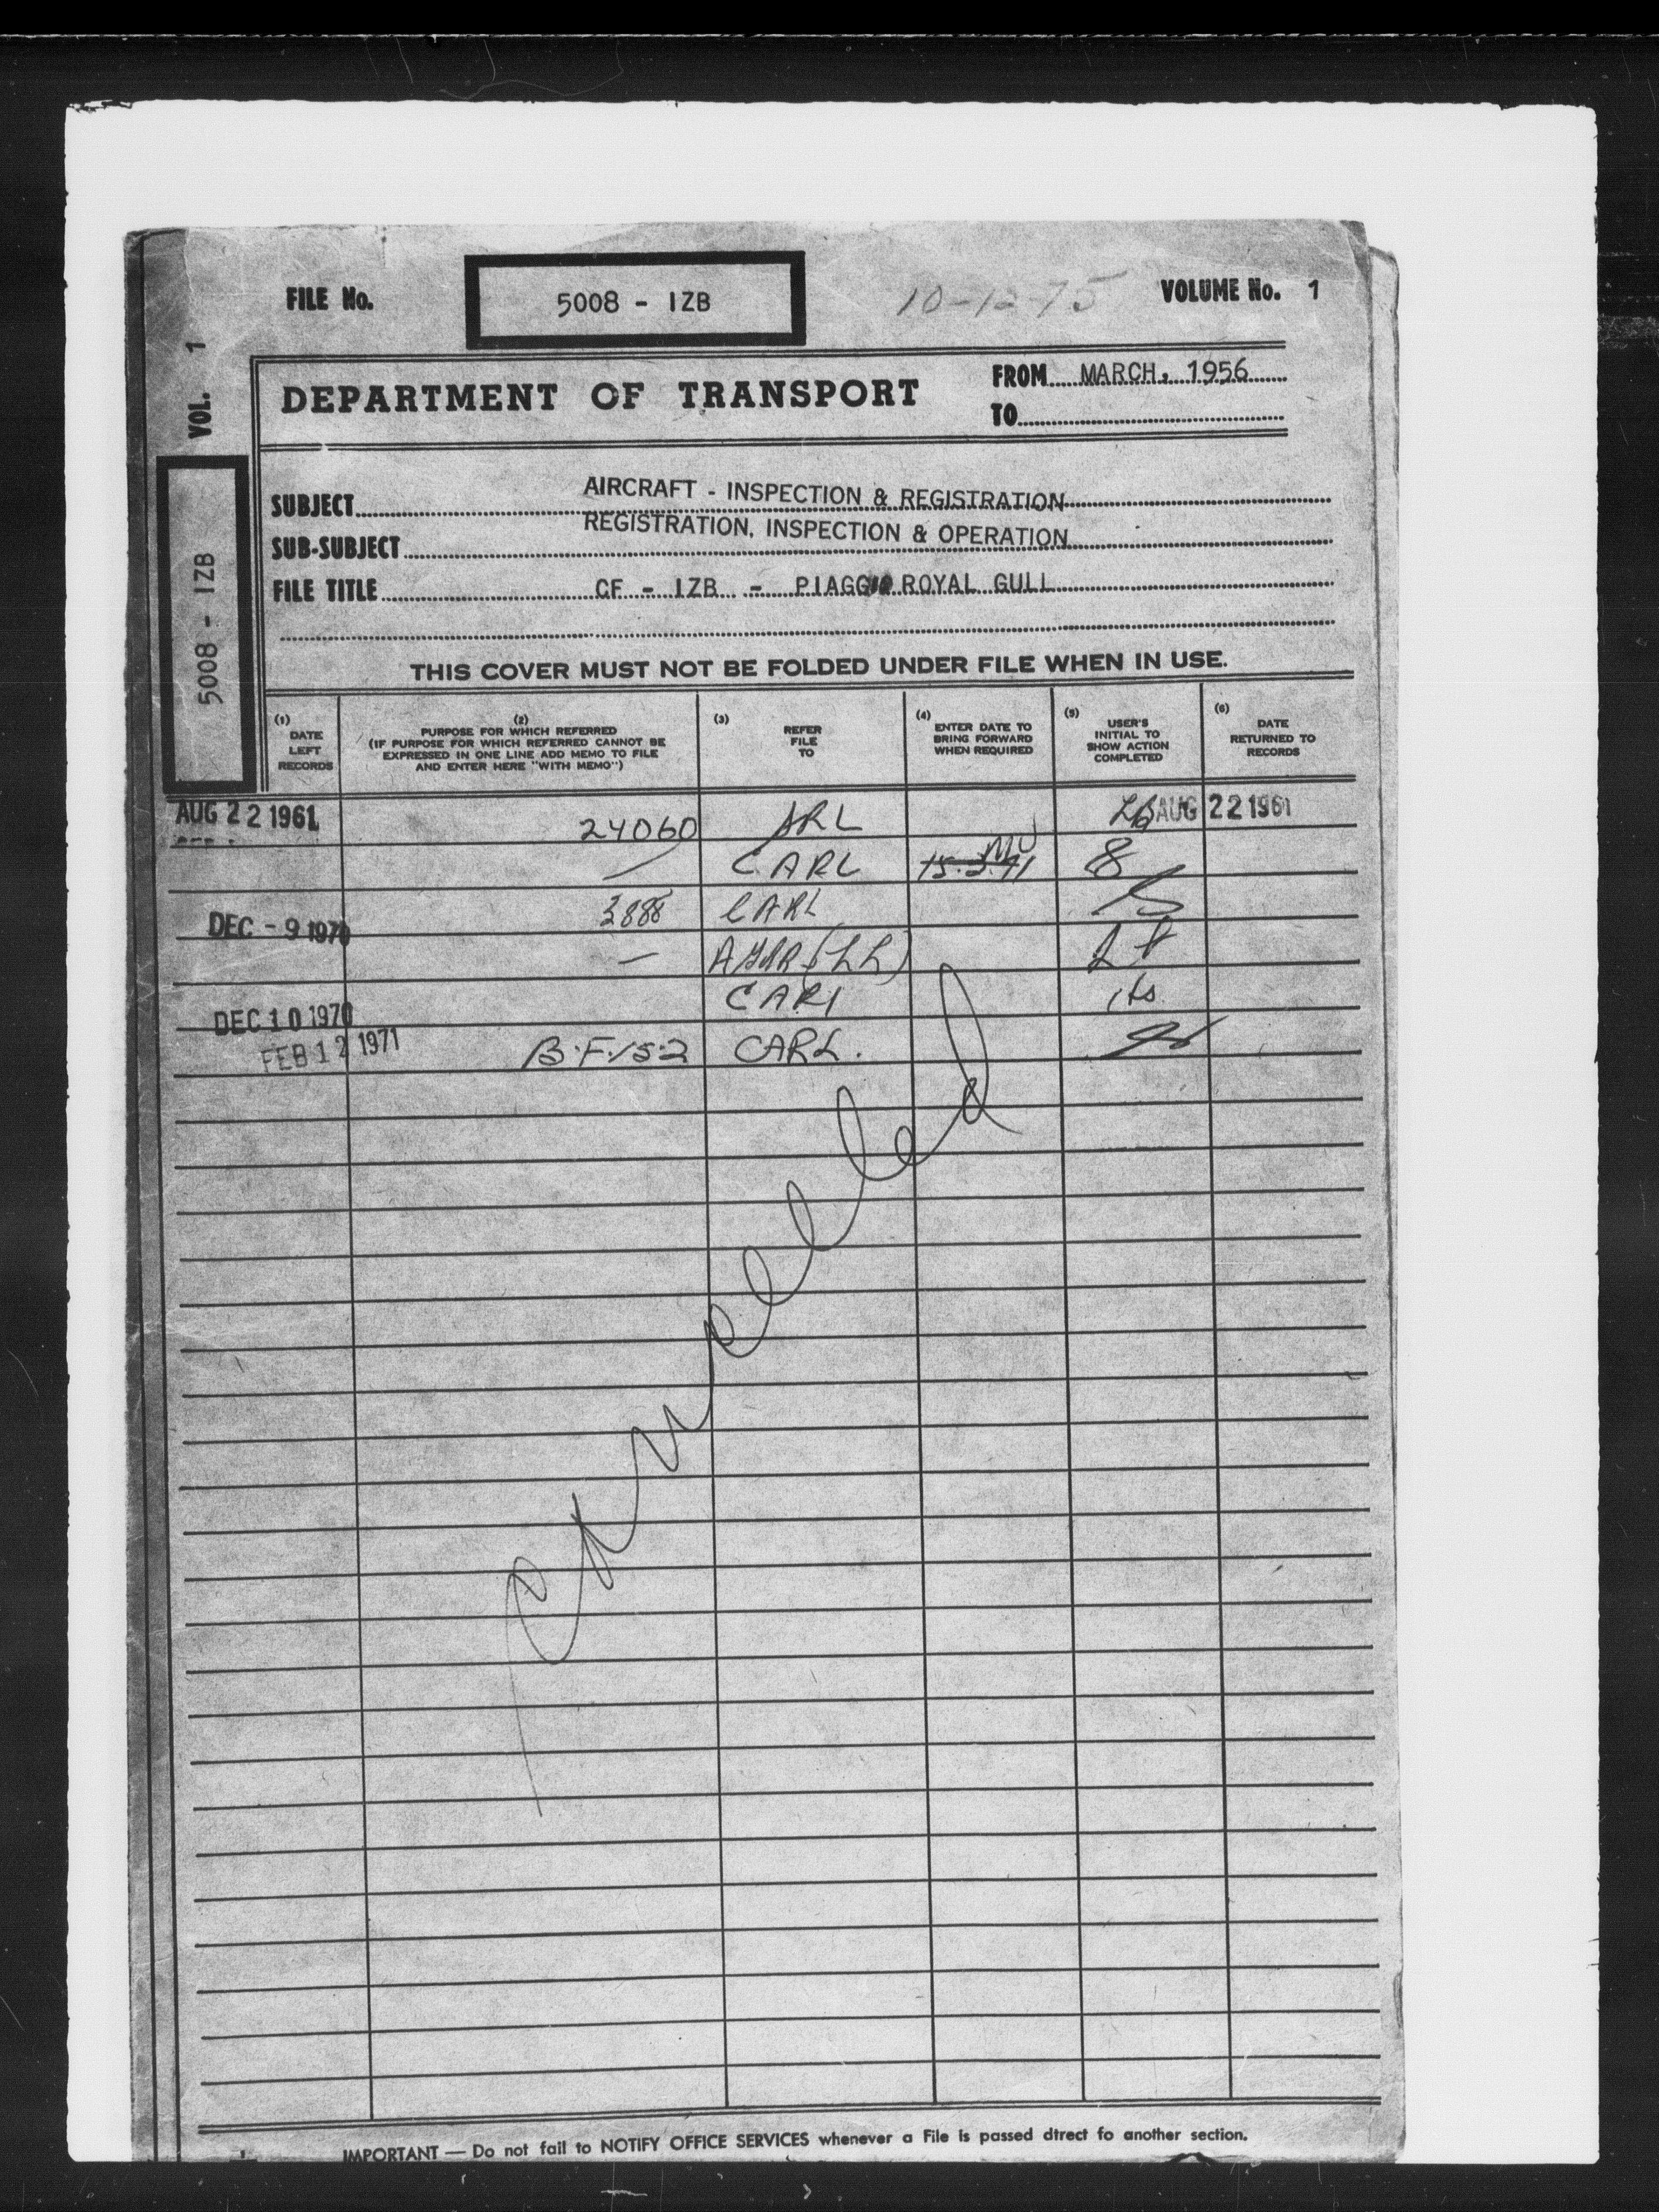 FILE No. 5008 - IZB 10-12-75 VOLUME No. 1
VOL. 1
5008 - IZB
DEPARTMENT OF TRANSPORT
FROM MARCH, 1956
TO
SUBJECT AIRCRAFT - INSPECTION & REGISTRATION
SUB-SUBJECT REGISTRATION, INSPECTION & OPERATION
FILE TITLE CF - IZB - PIAGGIO ROYAL GULL
THIS COVER MUST NOT BE FOLDED UNDER FILE WHEN IN USE.
(1) DATE LEFT RECORDS
(2) PURPOSE FOR WHICH REFERRED (IF PURPOSE FOR WHICH REFERRED CANNOT BE EXPRESSED IN ONE LINE ADD MEMO TO FILE AND ENTER HERE "WITH MEMO")
(3) REFER FILE TO
(4) ENTER DATE TO BRING FORWARD WHEN REQUIRED
(5) USER'S INITIAL TO SHOW ACTION COMPLETED
(6) DATE RETURNED TO RECORDS
AUG 22 1961 24060 ARL AUG 22 1961
— CARL 15.3.71
DEC - 9 1970 3888 CARL
—
DEC 10 1970 CARL
FEB 12 1971 B.F.15.2 CARL.
Cancelled
IMPORTANT — Do not fail to NOTIFY OFFICE SERVICES whenever a File is passed dtrect fo another section.